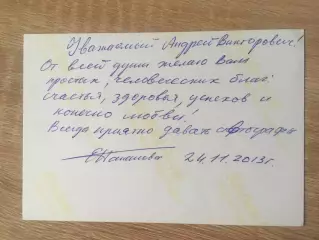 Уважаемый Андрей Викторович!
От всей души желаю Вам
простых, человеческих благ:
счастья, здоровья, успехов и
конечно любви!
Всегда приятно давать автографы
24.11.2013г.